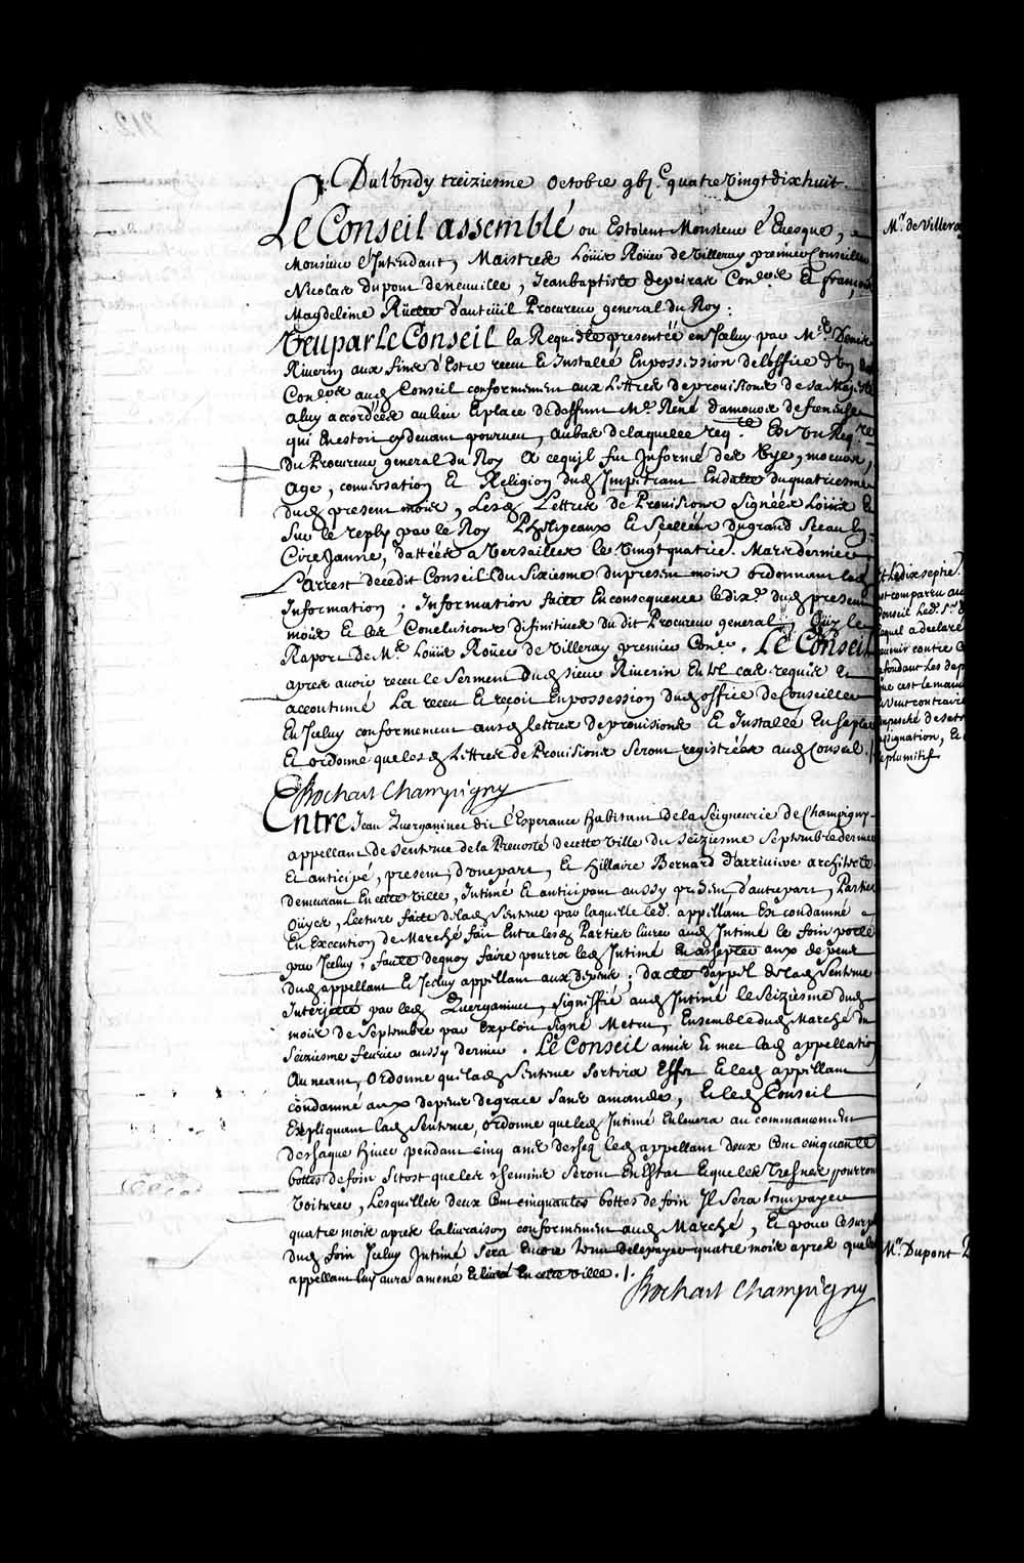 Du lundy treiziesme octobre gbj.c quatre vingt dix huit.
Le Conseil assemblé ou Estoient Monsieur l'Euesque,
Monsieur l'Intendant, Maistres Loüis Roüer de Villeray premier Conseiller
Nicolas dupont deneuuille, Jean baptiste depeiras Con.ers Et françois
Magdeleine Rüette d'auteüil Procureur general du Roy:
Veu par Le Conseil la Requeste presentée en Iceluy par M.e Denis
Riuerin aux fins d'Estre receu Et Installé En possession de l'office d'vn des
Con.ers aud Conseil conformement aux Lettres de prouisions de sa Majesté
a luy accordées au lieu Et place de deffunt M.e René damours
qui En estoit cy deuant pourueu, au bas de laquelle req.te Est vn Req.re
Du Procureur general du Roy a ce qu'jl fut Informé des Vye, moeurs,
Age, conuersation Et Religion dud Impetrant En datte du quatriesme
dud present mois, Lesd Lettres de Prouisions signées Loüis Et
sur le reply par le Roy Phelipeaux Et scellées du grand sceau En
Cire Jaune, dattées a Versailles le Vingt quatrie. Mars dernier,
L'Arrest de cedit Conseil du sixiesme du present mois ordonnant lad
Information; Information faitte En consequence le dix.e dud present
mois Et les Conclusions difinitiues du dit Procureur general, Oüy le
Raport de M.e Loüis Roüer de Villeray premier Con.er. Le Conseil
apres auoir receu le serment dud sieur Riuerin En tel cas requis Et
accoutumé La receu Et reçoit En possession dud office de Conseiller
En Iceluy conformement ausd Lettres de prouisions Et Installé
Et ordonné que lesd Lettres de Prouisions seront registrées aud Conseil ./.
Bochart Champigny
Entre Jean Quergaminec dit l'Esperance habitant de la Seigneurie de Champigny
appellant de sentence de la Preuosté de cette Ville du seiziesme septembre dernier
Et anticipé, present, d'vne part, Et Hillaire Bernard d'arriuiere architecte
demeurant En cette Ville, Intimé Et anticipant aussy present d'autre part, Parties
Oüyes, Lecture faite de lad sentence par laquelle led. appellant Est condamné a
En Execution de Marché fait Entre lesd Parties liurer aud Intimé le foin porté
par Iceluy, faute dequoy faire pourra led Intimé En achepter aux depens
dud appellant Et Iceluy appellant aux depens; d'acte d'appel de lad sentence
Interjetté par led Quergaminec, signiffié aud Intimé le seiziesme dud
mois de septembre par Exploit signé Metru, Ensemble dud Marché du
seiziesme feurier aussy dernier. Le Conseil a mis Et met lad appellation
Au neant, ordonne que lad sentence sortira Effet Et led appellant
condamné aux depens de grace sans amande, Et led Conseil
Expliquant lad sentence, ordonne que led Intimé Enleuera au commancement
de chaque hiuer pendant cinq ans de chez led appellant deux cent cinquante
bottes de foin sitost que les chemins seront En Estat Et que les Tresnes pourront
voiturer, Lesquelles deux cent cinquantes bottes de foin Il sera tenu payer
quatre mois apres la liuraison conformement aud Marché, Et pour le surplus
dud foin Iceluy Intimé sera Encore tenu de le payer quatre mois apres que led
appellant luy aura amené Et liuré En cette Ville ./.
Bochart Champigny
M.r de Villeray
Et Ledix septie.
est comparu au
Conseil Led. S.r
lequel a declaré
contre
Les dep
contraire
signation, Et
plumitif
M.r Dupont